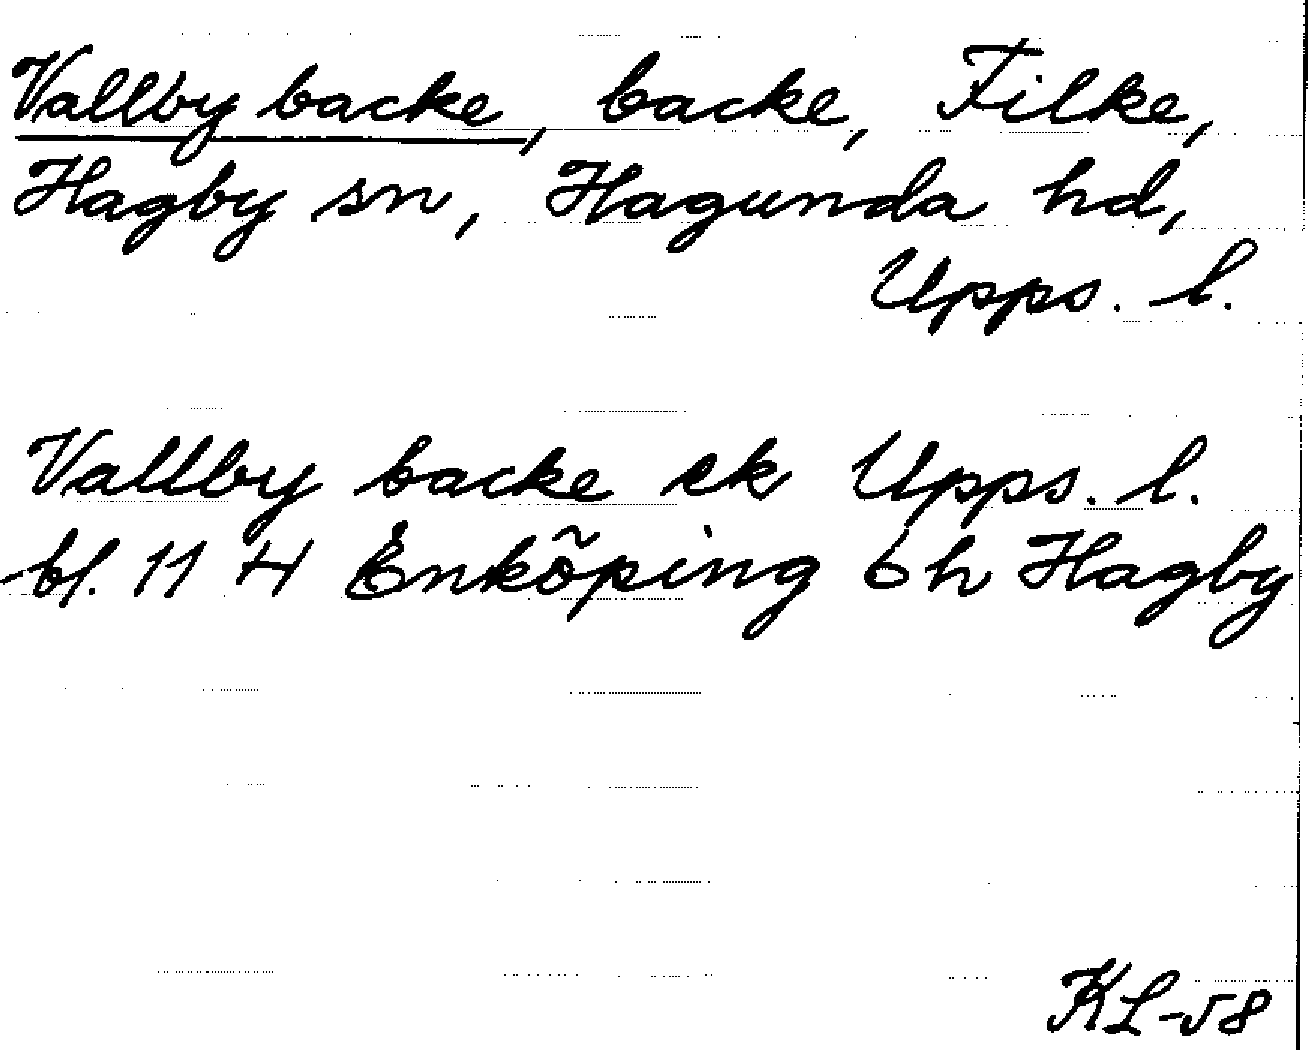 Vallby backe, backe, Filke,
Hagby sn, Hagunda hd,
Upps. l.
Vallby backe ek Upps. l.
bl. 11 H Enköping 6h Hagby
KL-58